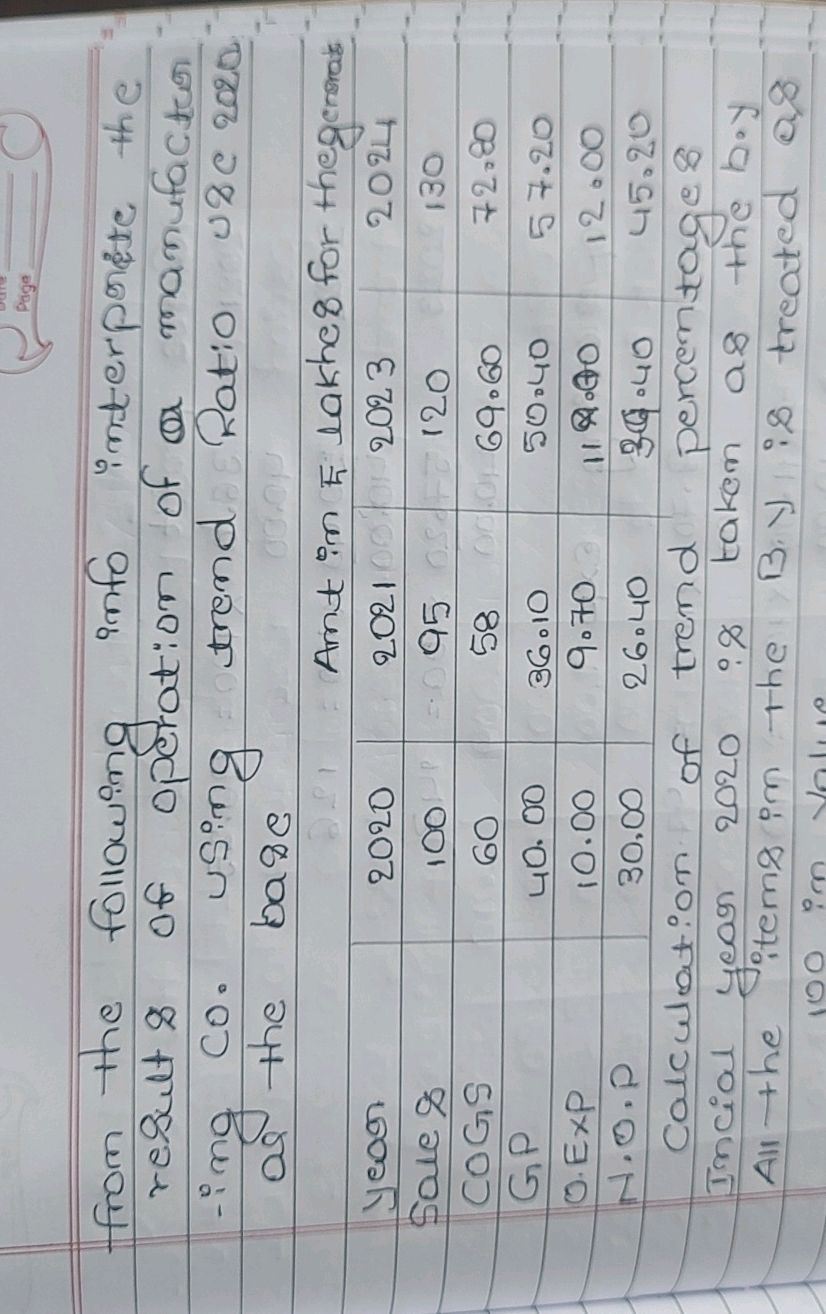 Page
from the following info interprete the
results of operation of a manufactur
-ing co. using trend Ratio use 2020
as the base
Amt in ₹ lakhes for the
year 2020 2021 2023 2024
Sales 100 95 120 130
COGS 60 58 69.60 72.80
GP 40.00 36.10 50.40 57.20
O.Exp 10.00 9.70 12.00
N.O.P 30.00 26.40 45.20
Calculation of trend percentages
Incial year 2020 is taken as the b.y
All the items in the B.y is treated as
100 in value